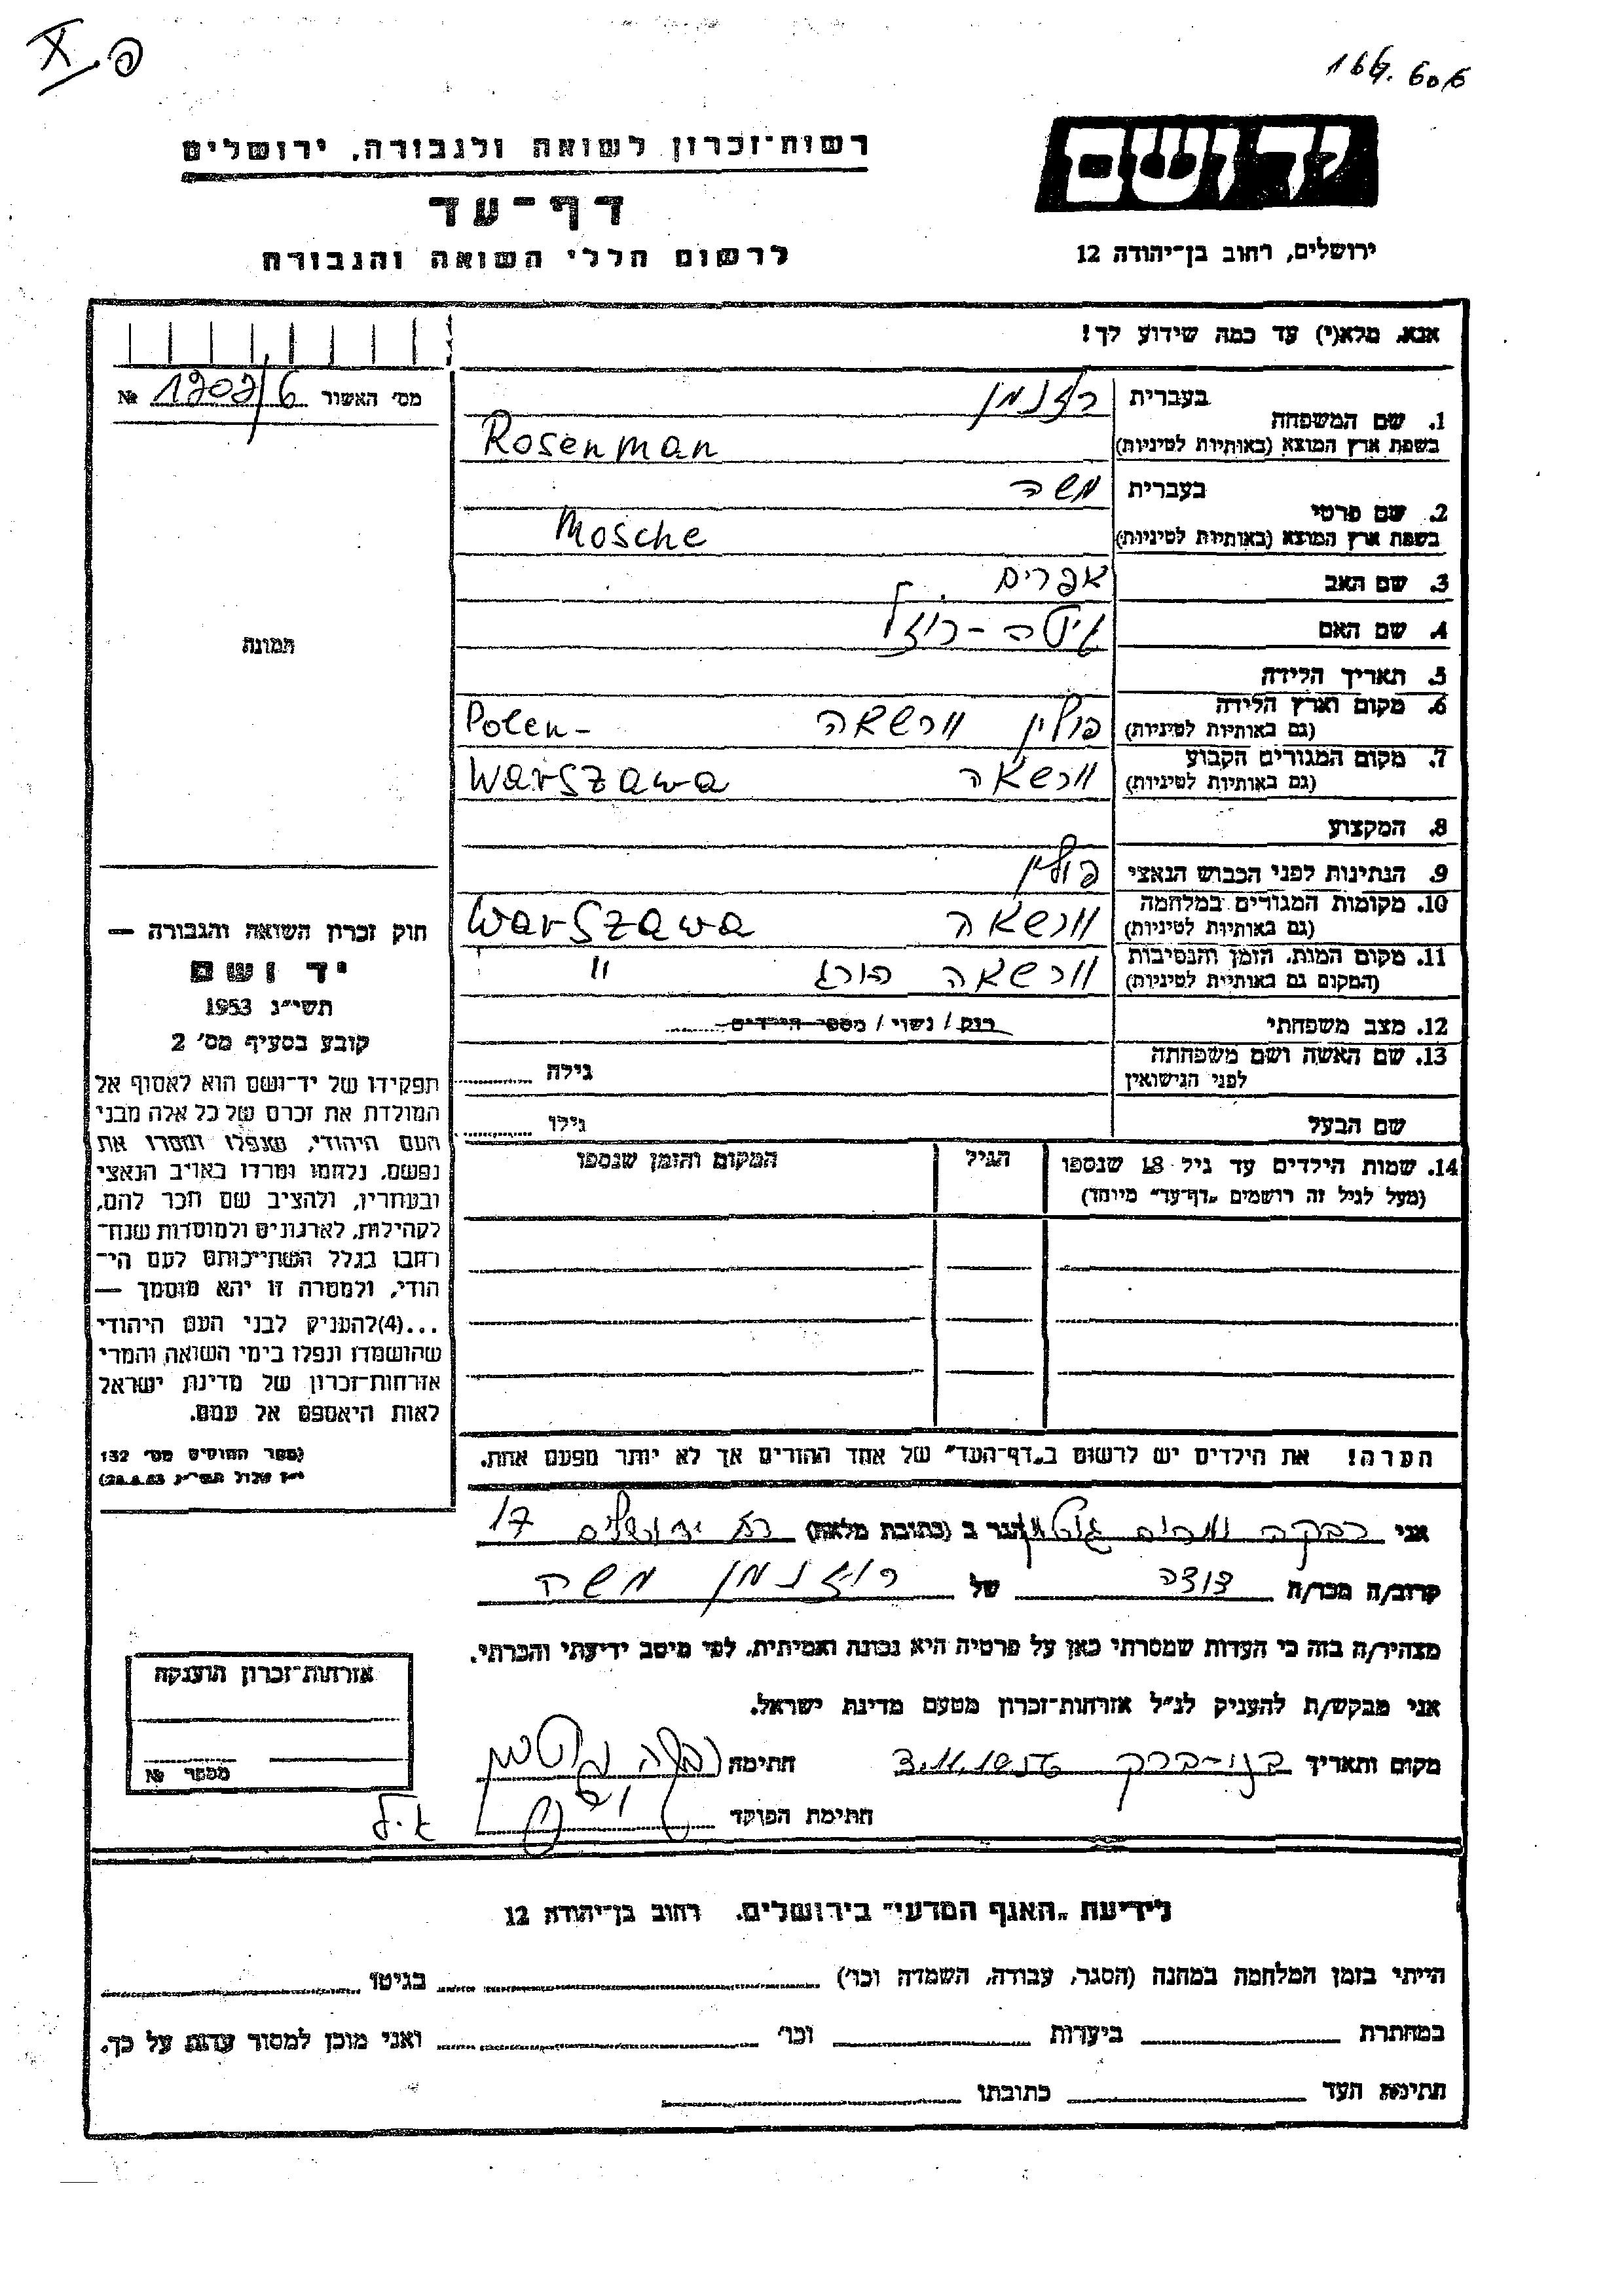 פ. X
164.606
רשות-זכרון לשואה ולגבורה, ירושלים
יד ושם
דף-עד
לרשום חללי השואה והגבורה
ירושלים, רחוב בן-יהודה 12
אנא, מלא(י) עד כמה שידוע לך!
מס' האשור № 1707/6
1. שם המשפחה בעברית רוזנמן
בשפת ארץ המוצא (באותיות לטיניות) Rosenman
2. שם פרטי בעברית משה
בשפת ארץ המוצא (באותיות לטיניות) Mosche
3. שם האב אפרים
4. שם האם
5. תאריך הלידה
6. מקום וארץ הלידה (גם באותיות לטיניות) פולין וורשאה Polen-
7. מקום המגורים הקבוע (גם באותיות לטיניות) וורשאה Warszawa
8. המקצוע
9. הנתינות לפני הכבוש הנאצי פולין
10. מקומות המגורים במלחמה (גם באותיות לטיניות) וורשאה Warszawa
11. מקום המות, הזמן והנסיבות (המקום גם באותיות לטיניות) וורשאה הורג "
12. מצב משפחתי רוק / נשוי / מספר הילדים
13. שם האשה ושם משפחתה לפני הנישואין גילה
שם הבעל גילו
14. שמות הילדים עד גיל 18 שנספו הגיל המקום והזמן שנספו
(מעל לגיל זה רושמים "דף-עד" מיוחד)
הערה! את הילדים יש לרשום ב"דף-העד" של אחד ההורים אך לא יותר מפעם אחת.
תמונה
חוק זכרון השואה והגבורה —
יד ושם
תשי"ג 1953
קובע בסעיף מס' 2
תפקידו של יד-ושם הוא לאסוף אל
המולדת את זכרם של כל אלה מבני
העם היהודי, שנפלו ומסרו את
נפשם, נלחמו ומרדו באויב הנאצי
ובעוזריו, ולהציב שם וזכר להם,
לקהילות, לארגונים ולמוסדות שנח-
רבו בגלל השתייכותם לעם הי-
הודי, ולמטרה זו יהא מוסמך —
...(4)להעניק לבני העם היהודי
שהושמדו ונפלו בימי השואה והמרי
אזרחות-זכרון של מדינת ישראל
לאות היאספם אל עמם.
(ספר החוקים מס' 132
י"ז אלול תשי"ג 28.8.53)
אני רבקה ומרים גוטמן הגר ב (כתובת מלאה) רח ירושלים 17
קרוב/ה מכר/ה דודה של רוזנמן משה
מצהיר/ה בזה כי העדות שמסרתי כאן על פרטיה היא נכונה ואמיתית, לפי מיטב ידיעתי והכרתי.
אני מבקש/ת להעניק לנ"ל אזרחות-זכרון מטעם מדינת ישראל.
מקום ותאריך בני-ברק 3.11.1956 חתימה
חתימת הפוקד
אזרחות-זכרון הוענקה
מספר №
לידיעת "האגף המדעי" בירושלים, רחוב בן-יהודה 12
הייתי בזמן המלחמה במחנה (הסגר, עבודה, השמדה וכו') בגיטו
במחתרת ביערות וכו' ואני מוכן למסור עדות על כך.
חתימת העד כתובתו